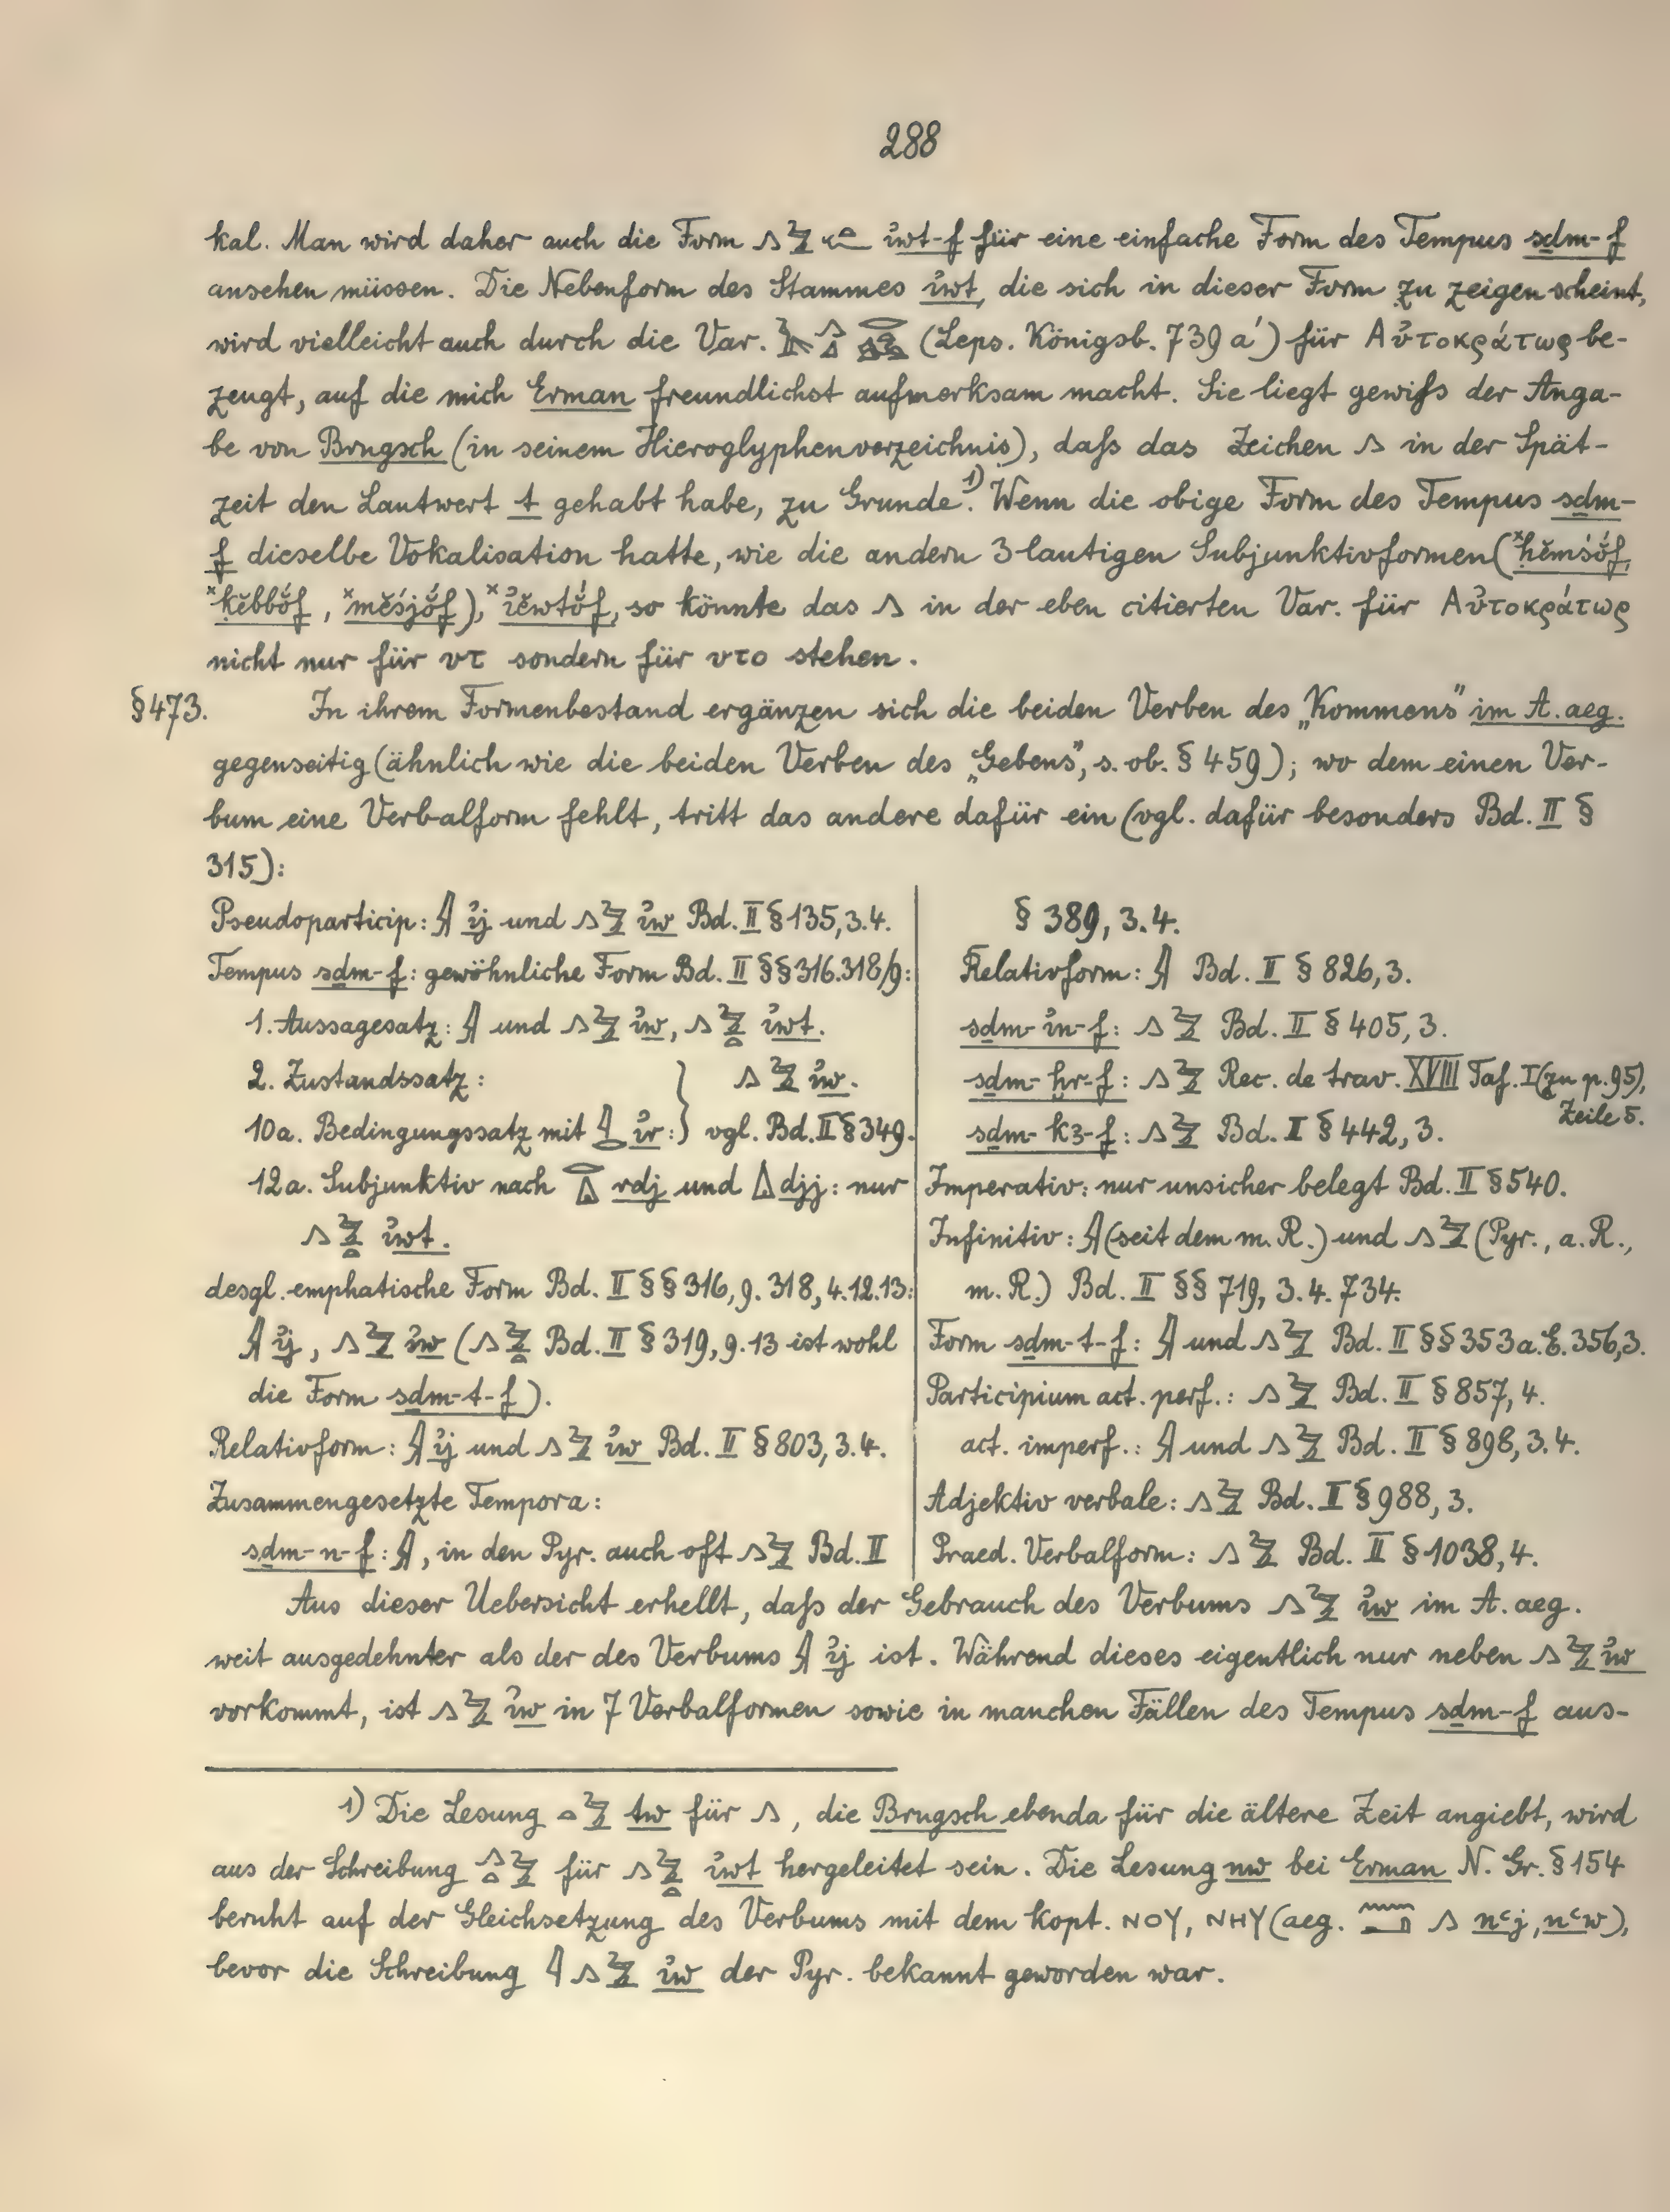 288
kal. Man wird daher auch die Form 𓂻𓅱𓏏𓆑 ı͗wt-f für eine einfache Form des Tempus sdm-f
ansehen müssen. Die Nebenform des Stammes ı͗wt, die sich in dieser Form zu zeigen scheint,
wird vielleicht auch durch die Var. (Leps. Königsb. 739 a') für Αὐτοκράτωρ be-
zeugt, auf die mich Erman freundlichst aufmerksam macht. Sie liegt gewiſs der Anga-
be von Brugsch (in seinem Hieroglyphenverzeichnis), daſs das Zeichen 𓂻 in der Spät-
zeit den Lautwert t gehabt habe, zu Grunde.¹⁾ Wenn die obige Form des Tempus sdm-
f dieselbe Vokalisation hatte, wie die andern 3 lautigen Subjunktivformen (ˣḥĕmsŏ́f,
ˣkĕbbŏ́f, ˣmĕsjŏ́f), ˣı͗ĕwtŏ́f, so könnte das 𓂻 in der eben citierten Var. für Αὐτοκράτωρ
nicht nur für υτ sondern für υτο stehen.
§473. In ihrem Formenbestand ergänzen sich die beiden Verben des „Kommens" im A. aeg.
gegenseitig (ähnlich wie die beiden Verben des „Gebens", s. ob. § 459); wo dem einen Ver-
bum eine Verbalform fehlt, tritt das andere dafür ein (vgl. dafür besonders Bd. II §
315):
Pseudoparticip: 𓇍 ı͗j und 𓂻𓅱 ı͗w Bd. II § 135, 3.4.
Tempus sdm-f: gewöhnliche Form Bd. II §§ 316. 318/9:
1. Aussagesatz: 𓇍 und 𓂻𓅱 ı͗w, 𓂻𓅱𓏏 ı͗wt.
2. Zustandssatz: } 𓂻𓅱 ı͗w.
10a. Bedingungssatz mit 𓇋𓂋 ı͗r: } vgl. Bd. II § 349.
12a. Subjunktiv nach 𓂋𓏙 rdj und 𓏙 djj: nur
𓂻𓅱𓏏 ı͗wt.
desgl. emphatische Form Bd. II §§ 316, 9. 318, 4.12.13:
𓇍 ı͗j, 𓂻𓅱 ı͗w (𓂻𓅱𓏏 Bd. II § 319, 9.13 ist wohl
die Form sdm-t-f).
Relativform: 𓇍 ı͗j und 𓂻𓅱 ı͗w Bd. II § 803, 3.4.
Zusammengesetzte Tempora:
sdm-n-f: 𓇍, in den Pyr. auch oft 𓂻𓅱 Bd. II
§ 389, 3.4.
Relativform: 𓇍 Bd. II § 826, 3.
sdm-ı͗n-f: 𓂻𓅱 Bd. II § 405, 3.
sdm-ḫr-f: 𓂻𓅱 Rec. de trav. XVIII Taf. I (zu p. 95),
Zeile 5.
sdm-kꜣ-f: 𓂻𓅱 Bd. II § 442, 3.
Imperativ: nur unsicher belegt Bd. II § 540.
Infinitiv: 𓇍 (seit dem m. R.) und 𓂻𓅱 (Pyr., a. R.,
m. R.) Bd. II §§ 719, 3.4. 734.
Form sdm-t-f: 𓇍 und 𓂻𓅱 Bd. II §§ 353 a. E. 356, 3.
Participium act. perf.: 𓂻𓅱 Bd. II § 857, 4.
act. imperf.: 𓇍 und 𓂻𓅱 Bd. II § 898, 3.4.
Adjektiv verbale: 𓂻𓅱 Bd. II § 988, 3.
Praed. Verbalform: 𓂻𓅱 Bd. II § 1038, 4.
Aus dieser Uebersicht erhellt, daſs der Gebrauch des Verbums 𓂻𓅱 ı͗w im A. aeg.
weit ausgedehnter als der des Verbums 𓇍 ı͗j ist. Während dieses eigentlich nur neben 𓂻𓅱 ı͗w
vorkommt, ist 𓂻𓅱 ı͗w in 7 Verbalformen sowie in manchen Fällen des Tempus sdm-f aus-
1) Die Lesung 𓏏𓅱 tw für 𓂻, die Brugsch ebenda für die ältere Zeit angiebt, wird
aus der Schreibung 𓂻𓏏𓅱 für 𓂻𓅱𓏏 ı͗wt hergeleitet sein. Die Lesung nw bei Erman N. Gr. § 154
beruht auf der Gleichsetzung des Verbums mit dem kopt. ⲚⲞⲨ, ⲚⲎⲨ (aeg. 𓈖𓂝𓂻 nꜥj, nꜥw),
bevor die Schreibung 𓇋𓂻𓅱 ı͗w der Pyr. bekannt geworden war.